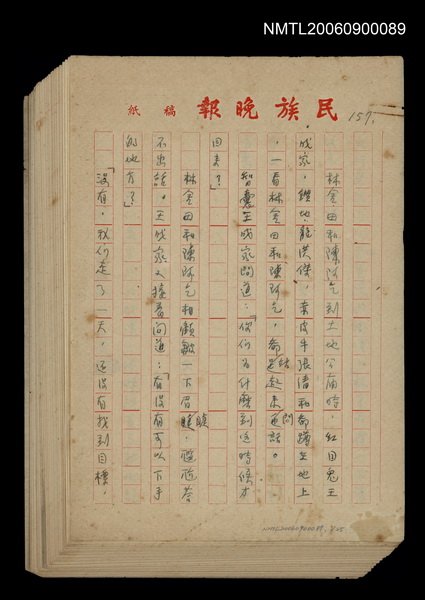 NMTL20060900089
民族晚報 稿紙
157.
林金田和陳阿乞到土地公廟時，紅目鬼王
成家，鑽地龍洪傑，牽皮牛張清和都蹲在地上
，一看林金田和陳阿乞，都站起來問話。
智囊王成家問道：「你們為什麼到這時候才
回來？」
林金田和陳阿乞相顧皺一下眉頭，尷尬答
不出話。王成家又接着問道：「有沒有可以下手
的地方？」
「沒有，我們走了一天，還沒有找到目標，
NMTL20060900089,